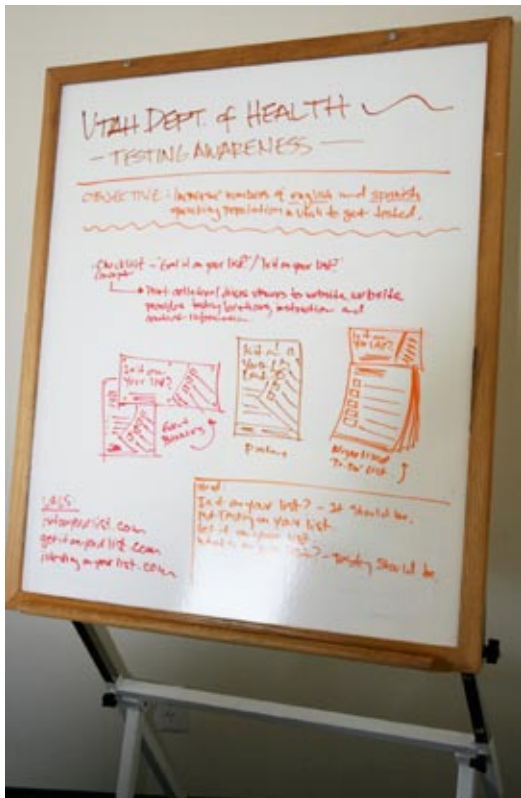 UTAH DEPT. of HEALTH
- TESTING AWARENESS -
OBJECTIVE: Increase numbers of english and spanish
speaking population in Utah to get tested.
Checklist - "Get it on your list!" / "Is it on your list?"
Concept
Print collateral drives viewers to website, website
provides testing locations, instruction and
Is it on
Your List?
Is it on
Your
List?
Is it on
Your List?
Event
Posters
Magnetized
To-Do List.
URLS:
isitonyourlist.com
getitonyourlist.com
onyourlist.com
Is it on your list? - It Should be.
Put Testing on Your list.
Get it on Your List
What's on your ? - Testing Should be.